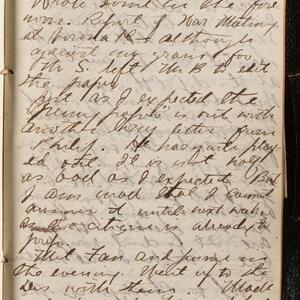 Wrote some in the fore
noon. Report of War Meeting
at
against my grain too
Mr S. left Mr B to edit
the paper
Just as I expected the
Penny paper is out with
another long letter from
Philip. He has quite play-
ed out. It is not half
as bad as I expected. But
I am mad that I cannot
answer it until next week
as the citizen is already to
press.
Met Fan and
the evening. Went up to
with them. Made